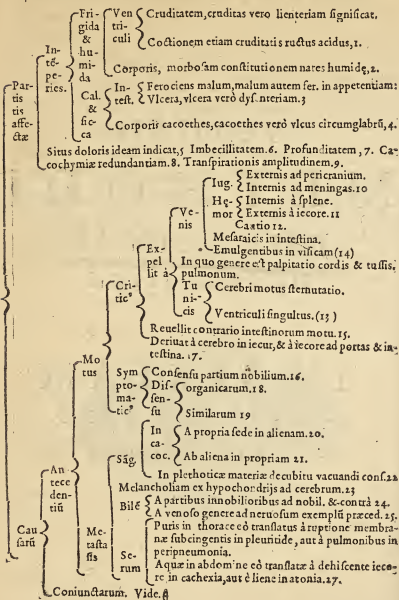 Partis affectæ
Intẽperies.
Frigida & humida
Ventriculi
Cruditatem, cruditas vero lienteriam significat.
Coctionem etiam cruditatis ructus acidus, 1.
Corporis, morbosam constitutionem nares humidę, 2.
Cal. & sicca
Intest.
Ferociens malum, malum autem fer. in appetentiam:
Vlcera, vlcera verò dysenteriam. 3
Corporis cacoethes, cacoethes verò vlcus circumglabrũ, 4.
Situs doloris ideam indicat, Imbecillitatem. 6. Profunditatem, 7. Cacochymiæ redundantiam. 8. Transpirationis amplitudinem. 9.
Causarũ
Antecedentiũ
Motus
Criticꝰ
Expellit à
Venis
Iug.
Externis ad pericranium.
Internis ad meningas. 10
Hęmor
Internis à splene.
Externis à iecore. 11
Cautio 12.
Mesaraicis in intestina.
Emulgentibus in visicam (14)
In quo genere est palpitatio cordis & tussis, pulmonum.
Tunicis
Cerebri motus sternutatio.
Ventriculi singultus. (13)
Reuellit contrario intestinorum motu. 15.
Deriuat à cerebro in iecur, & à iecore ad portas & intestina. 17.
Symptomaticꝰ
Consensu partium nobilium. 16.
Dissensu
organicarum. 18.
Similarum 19
Metastasis
Sãg.
In cacoc.
A propria sede in alienam. 20.
Ab aliena in propriam 21.
In plethoticæ materiæ decubitu vacuandi cons. 22
Melancholiam ex hypochondrijs ad cerebrum. 23
Bilẽ
A partibus innobilioribus ad nobil. & contrà 24.
A venoso genere ad neruosum exemplũ præced. 25.
Serum
Puris in thorace eò translatus à ruptione membranæ subcingentis in pleuritide, aut à pulmonibus in peripneumonia.
Aquæ in abdomine eò translatæ à dehiscente iecore in cachexia, aut è liene in atonia. 27.
Coniunctarum. Vide.